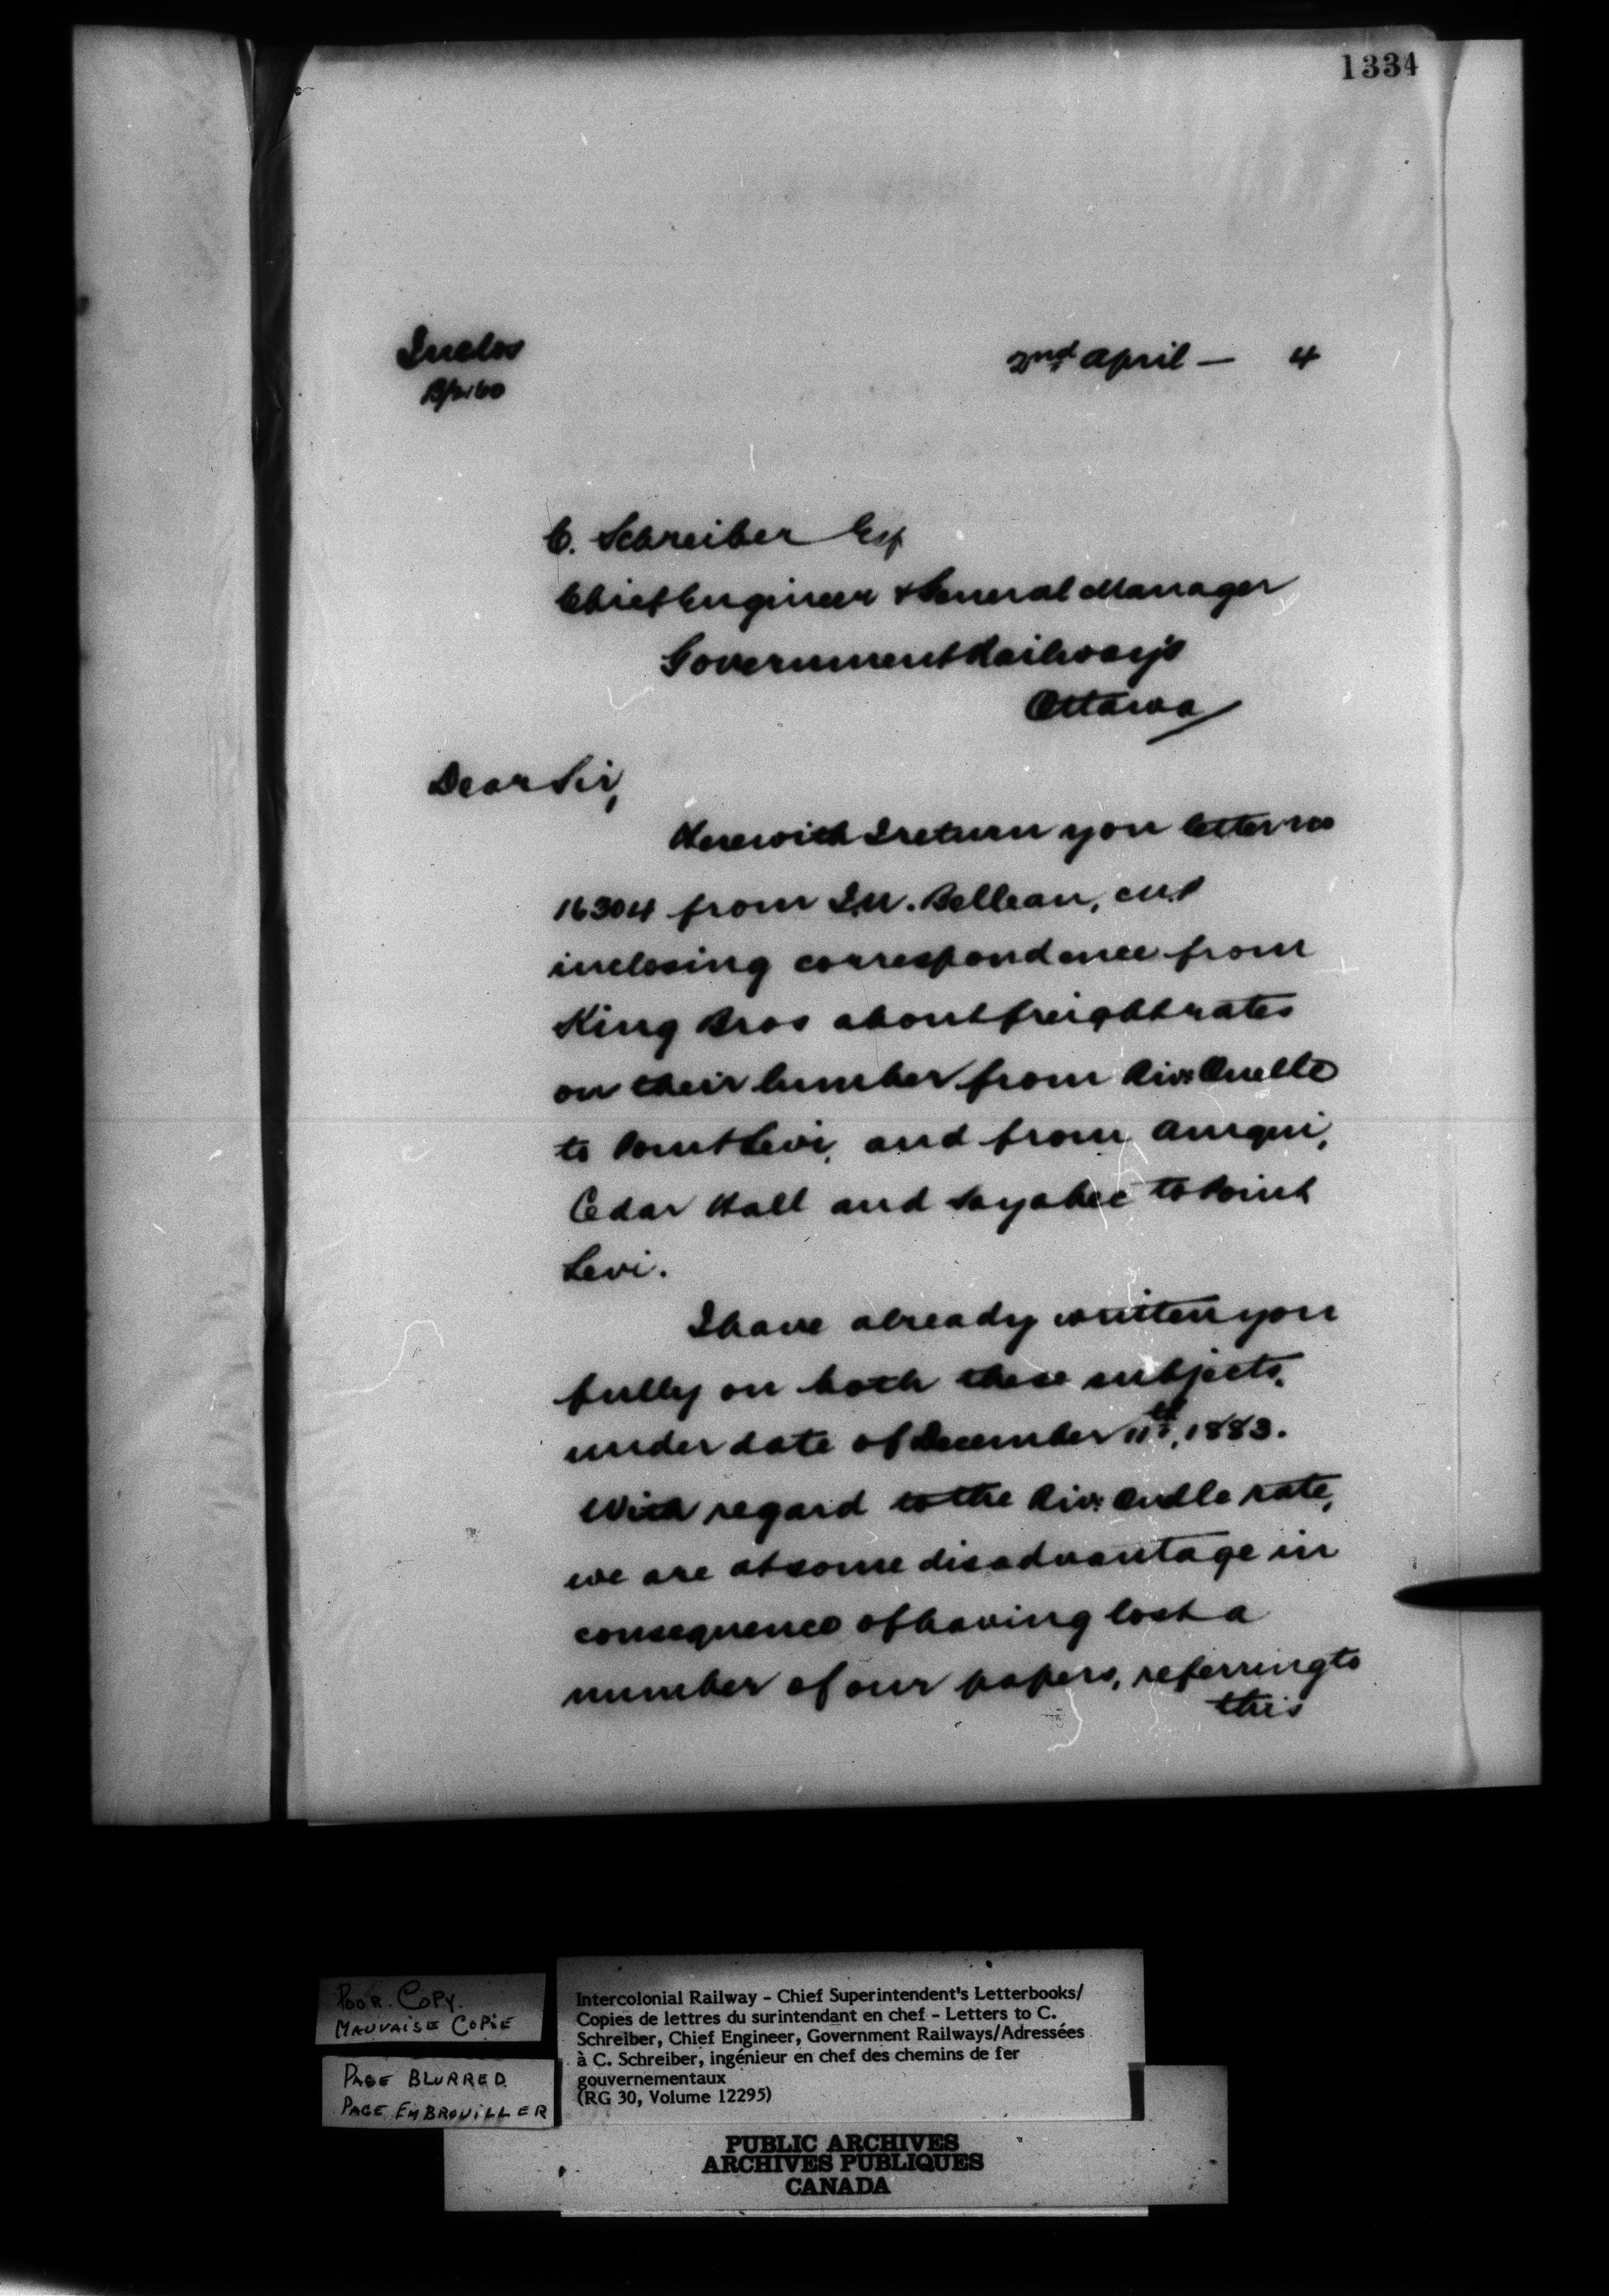 1334
Inclos
2nd April — 4
C. Schreiber Esq
Chief Engineer & General Manager
Government Railways
Ottawa
Dear Sir,
Herewith I return you letter no
16304 from I.N. Belleau, M.P
inclosing correspondence from
King Bros about freight rates
on their lumber from Riv: Ouelle
to Point Levi, and from Amqui,
Cedar Hall and Sayabec to Point
Levi.
I have already written you
fully on both these subjects,
under date of December 11th, 1883.
With regard to the Riv: Ouelle rate,
we are at some disadvantage in
consequence of having lost a
number of our papers, referring to
this
POOR COPY.
MAUVAISE COPIE
PAGE BLURRED
PAGE EMBROUILLER
Intercolonial Railway - Chief Superintendent's Letterbooks/
Copies de lettres du surintendant en chef - Letters to C.
Schreiber, Chief Engineer, Government Railways/Adressées
à C. Schreiber, ingénieur en chef des chemins de fer
gouvernementaux
(RG 30, Volume 12295)
PUBLIC ARCHIVES
ARCHIVES PUBLIQUES
CANADA